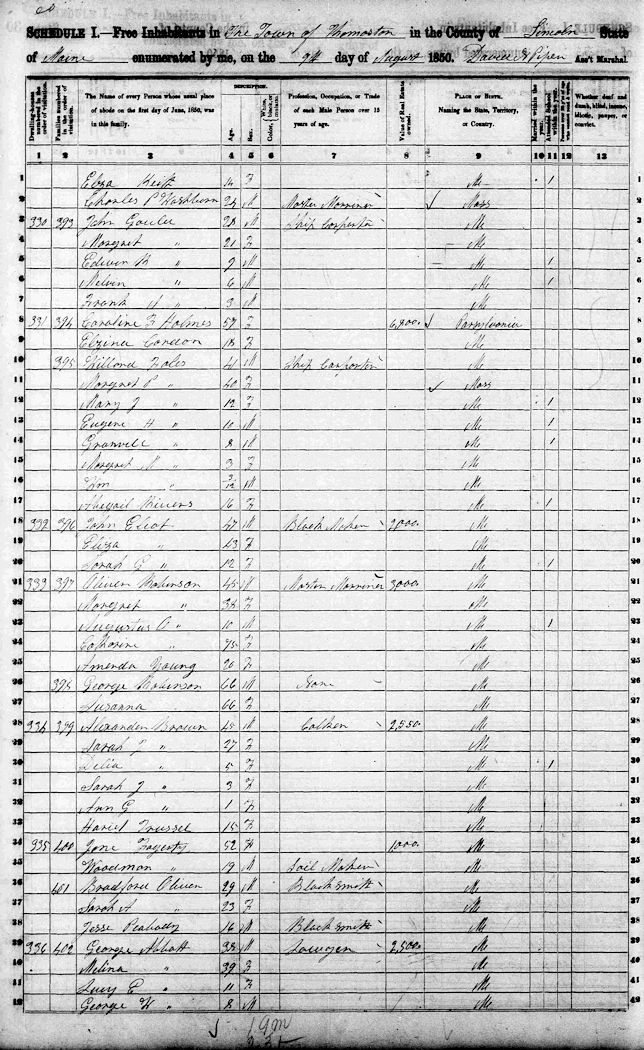 SCHEDULE I.—Free Inhabitants in The Town of Thomaston in the County of Lincoln State
of Maine enumerated by me, on the 9th day of August 1850. David N Piper Ass't Marshal.
Dwelling-houses numbered in the order of visitation.
Families numbered in the order of visitation.
The Name of every Person whose usual place of abode on the first day of June, 1850, was in this family.
DESCRIPTION.
Age.
Sex.
Color, White, black, or mulatto.
Profession, Occupation, or Trade of each Male Person over 15 years of age.
Value of Real Estate owned.
PLACE OF BIRTH. Naming the State, Territory, or Country.
Married within the year.
Attended School within the year.
Whether deaf and dumb, blind, insane, idiotic, pauper, or convict.
1 2 3 4 5 6 7 8 9 10 11 12 13
1 Eliza Keith F Me 1 1
2 Charles P Washburn 24 M Master Marriner Mass 2
3 330 393 John 28 M Ship Carpenter Me 3
4 Margret " 21 F Me 4
5 Edwin K " M Me 1 5
6 Melvin " 6 M Me 1 6
7 Frank " 3 M Me 7
8 331 394 Caroline F Holmes 57 F Pennsylvania 8
9 Condon 18 F Me 9
10 395 Fales 41 M Ship Carpenter Me 10
11 Margret P " 40 F Mass 11
12 Mary J " 12 F Me 1 12
13 Eugene H " 10 M Me 1 13
14 Granvill " 8 M Me 1 14
15 Margret M " 3 F Me 15
16 Wm " 3/12 M Me 16
17 Abigail Rivers 16 F Me 1 17
18 332 396 John Eliot 47 M Block Maker 2000 Me 18
19 Eliza " 43 F Me 19
20 Sarah G " 12 F Me 1 20
21 333 397 Oliver Robinson 45 M Master Marriner 3000 Me 21
22 Margret " F Me 22
23 Augustus O " 10 M Me 1 23
24 Catharine " 75 F Me 24
25 Amenda Young 20 F Me 25
26 398 George Robinson 66 M None Me 26
27 Susanna 66 F Me 27
28 334 399 Alexander Brown 45 M Calker Me 28
29 Sarah J " 27 F Me 29
30 Delia " 5 F Me 1 30
31 Sarah J " 3 F Me 31
32 Ann G " 1 F Me 32
33 Hariet Trussel 15 F Me 33
34 335 400 Jane Fogerty 52 F 1000 Me 34
35 Woodman " 19 M Sail Maker Me 35
36 401 Bradford Oliver 29 M Blacksmith Me 36
37 Sarah A " 23 F Me 37
38 Jesse Peabody 16 M Blacksmith Me 38
39 336 402 George Abbott 38 M Lawyer 2,500 Me 39
40 Melina " 39 F Me 40
41 Lucy E " 11 F Me 41
42 George W " 8 M Me 42
19 m